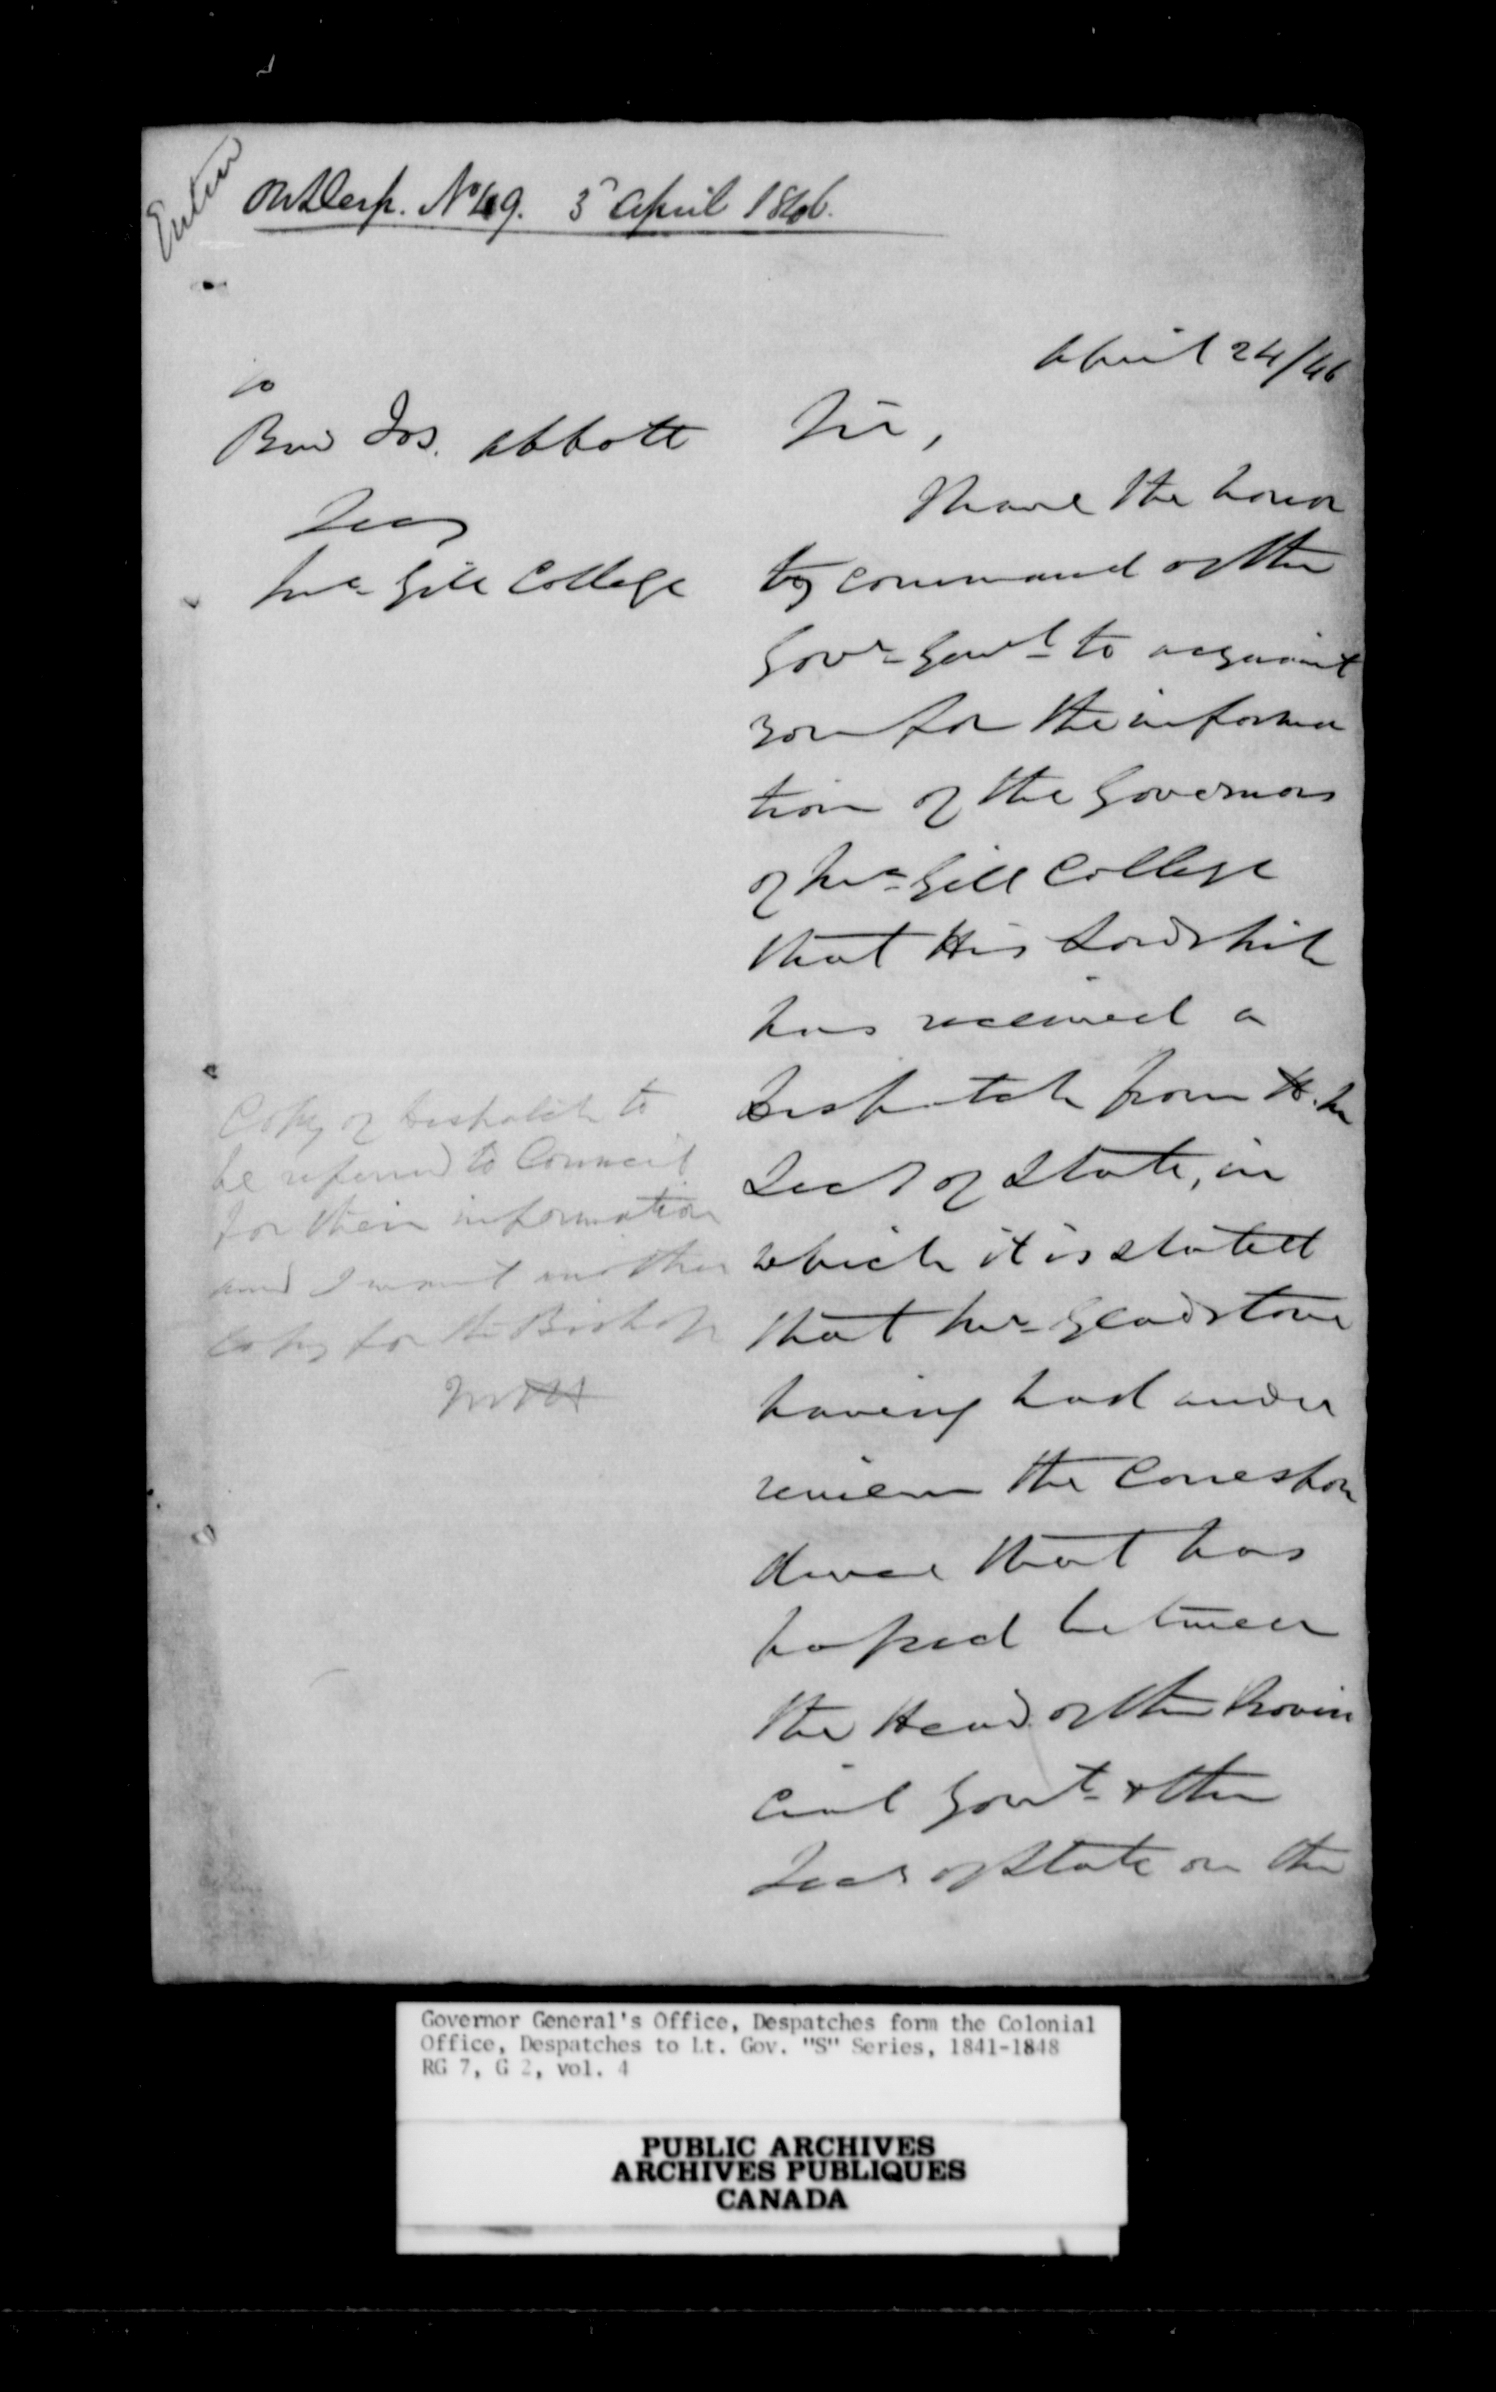 Enter
On Desp. No 49. 3d April 1846.
April 24/46
To
Revd Jos. Abbott
Secy
McGill College
Sir,
I have the honor
by command of the
Govr Genl to acquaint
you for the informa
tion of the Governors
of McGill College
that His Lordship
has received a
Despatch from H. M.
Secy of State, in
which it is stated
that Mr Gladstone
having had under
review the Correspon
dence that has
passed between
the Head of the Provin
cial Govt & the
Secy of State on the
Copy of Despatch to
be referred to Council
for their information
and I want another
copy for the Bishop
Governor General's Office, Despatches form the Colonial
Office, Despatches to Lt. Gov. "S" Series, 1841-1848
RG 7, G 2, vol. 4
PUBLIC ARCHIVES
ARCHIVES PUBLIQUES
CANADA